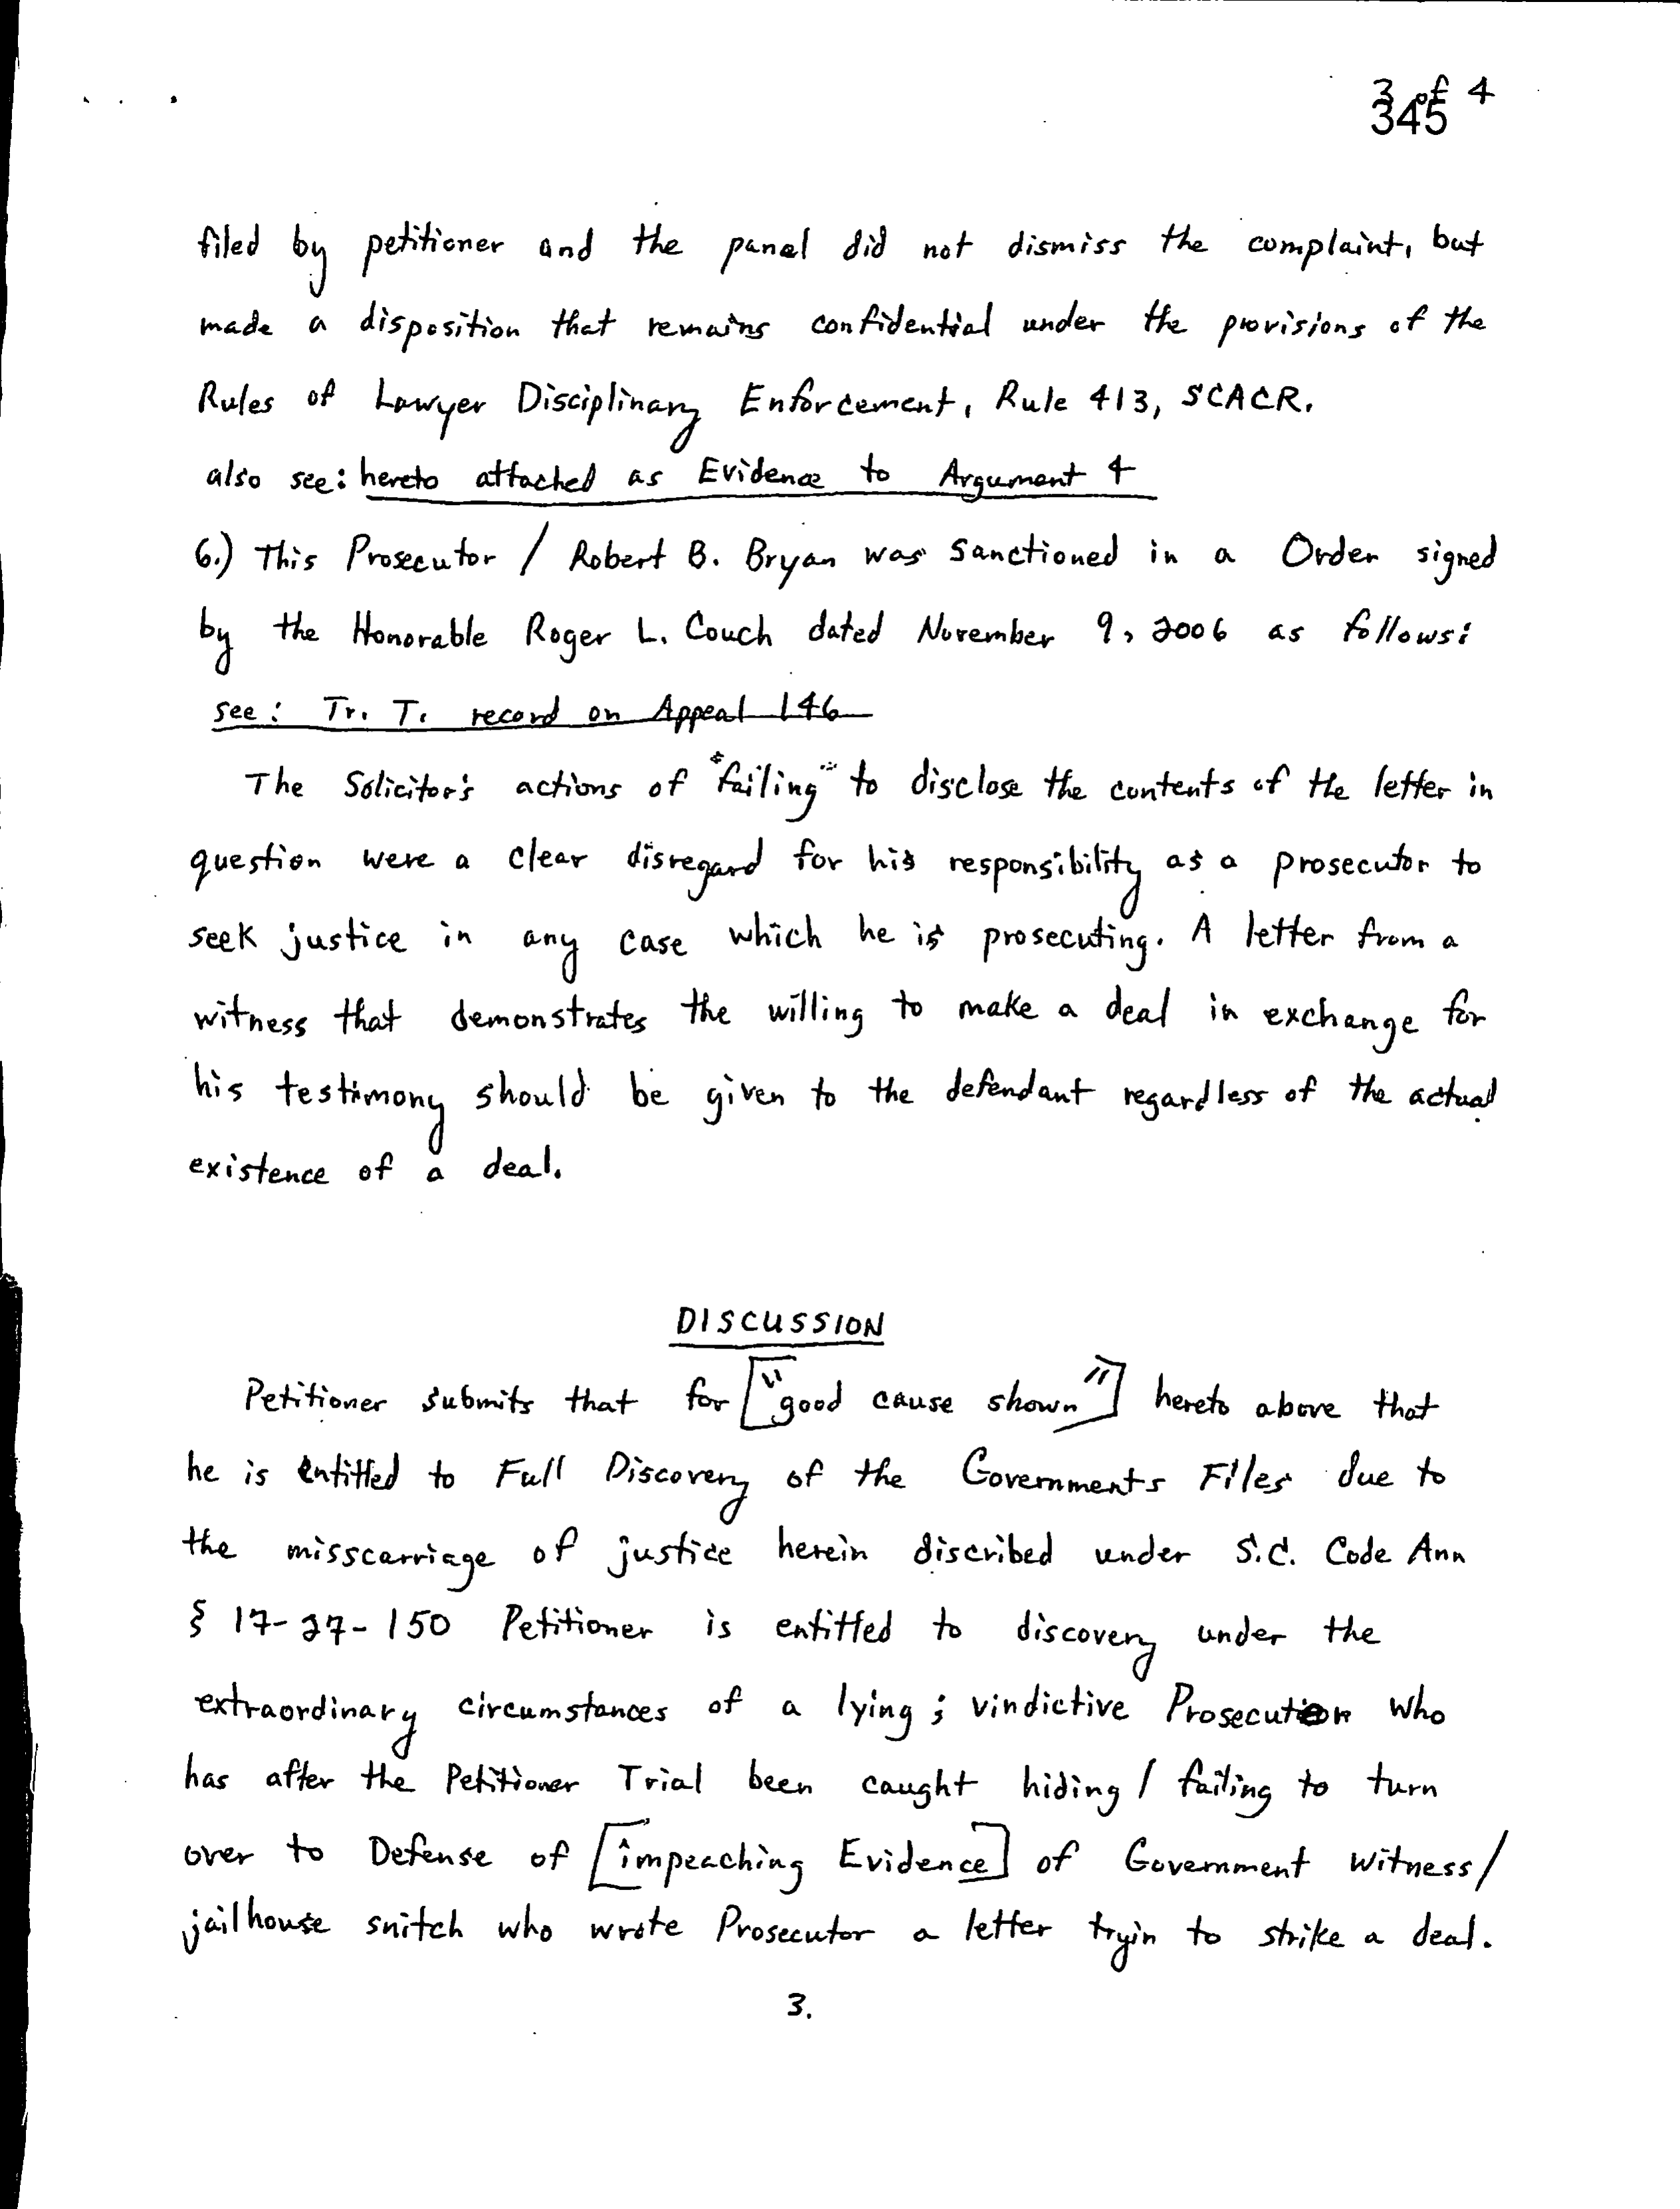 3 of 4
345
filed by petitioner and the panel did not dismiss the complaint, but
made a disposition that remains confidential under the provisions of the
Rules of Lawyer Disciplinary Enforcement, Rule 413, SCACR.
also see: hereto attached as Evidence to Argument 4
6.) This Prosecutor / Robert B. Bryan was Sanctioned in a Order signed
by the Honorable Roger L. Couch dated November 9, 2006 as follows:
see: Tr. T. record on Appeal 146
The Solicitor's actions of "failing" to disclose the contents of the letter in
question were a clear disregard for his responsibility as a prosecutor to
seek justice in any case which he is prosecuting. A letter from a
witness that demonstrates the willing to make a deal in exchange for
his testimony should be given to the defendant regardless of the actual
existence of a deal.
DISCUSSION
Petitioner submits that for ["good cause shown"] hereto above that
he is entitled to Full Discovery of the Governments Files due to
the misscarriage of justice herein discribed under S.C. Code Ann
§ 17-27-150 Petitioner is entitled to discovery under the
extraordinary circumstances of a lying; vindictive Prosecution who
has after the Petitioner Trial been caught hiding / failing to turn
over to Defense of [impeaching Evidence] of Government witness/
jailhouse snitch who wrote Prosecutor a letter tryin to strike a deal.
3.